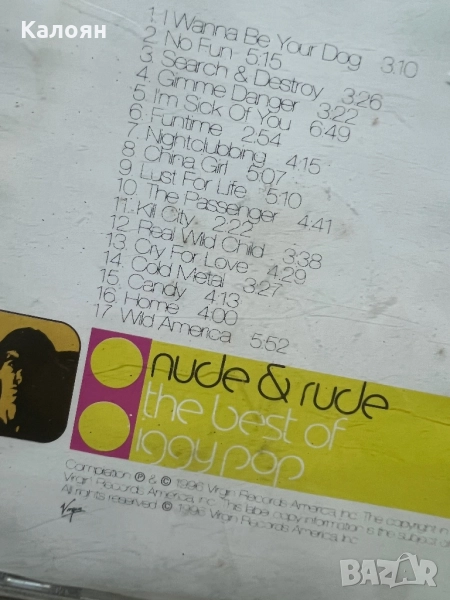 Калоян
1. I Wanna Be Your Dog 3:10
2 No Fun 5:15
3 Search & Destroy 3:26
4 Gimme Danger 3:22
5 I'm Sick Of You 6:49
6 Funtime 2:54
7 Nightclubbing 4:15
8 China Girl 5:07
9 Lust For Life 5:10
10 The Passenger 4:41
11 Kill City 2:22
12 Real Wild Child 3:38
13 Cry For Love 4:29
14 Cold Metal 3:27
15 Candy 4:13
16 Home 4:00
17 Wild America 5:52
nude & rude
the best of
iggy pop
Compilation ℗ & © 1996 Virgin Records America, Inc. The copyright in
Virgin Records America, Inc. This label copy information is the subject
All rights reserved © 1996 Virgin Records America, Inc
Virgin
BAZAR